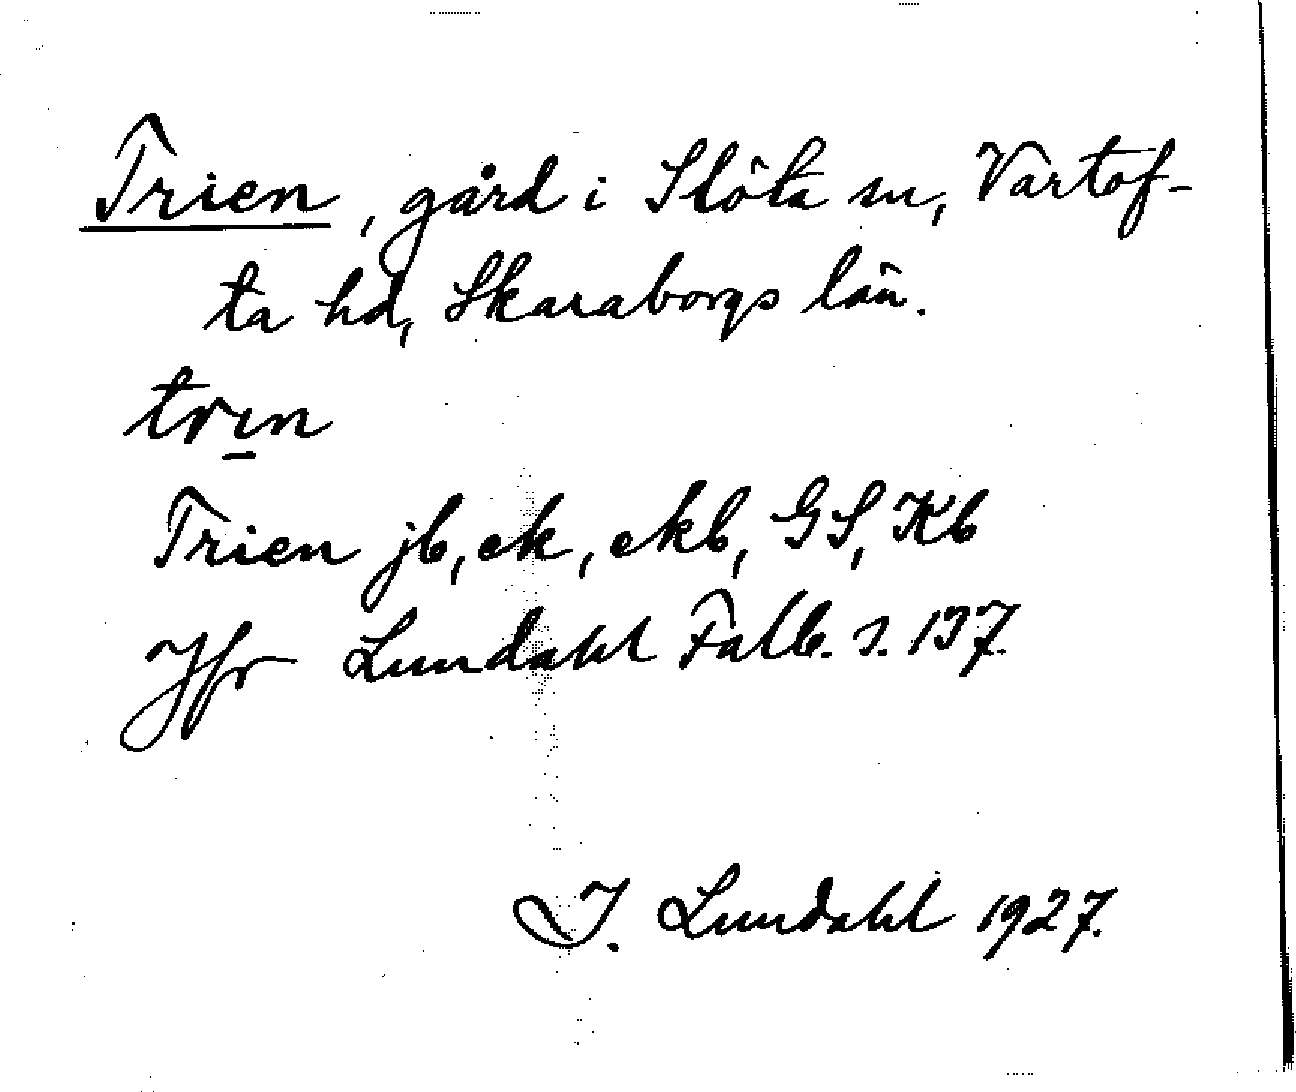 Trien, gård i Slöta sn, Vartof-
ta hd, Skaraborgs län.
trın
Trien jb, ek, ekb, GS, Kb
Jfr Lundahl Falb. s. 137.
I. Lundahl 1927.